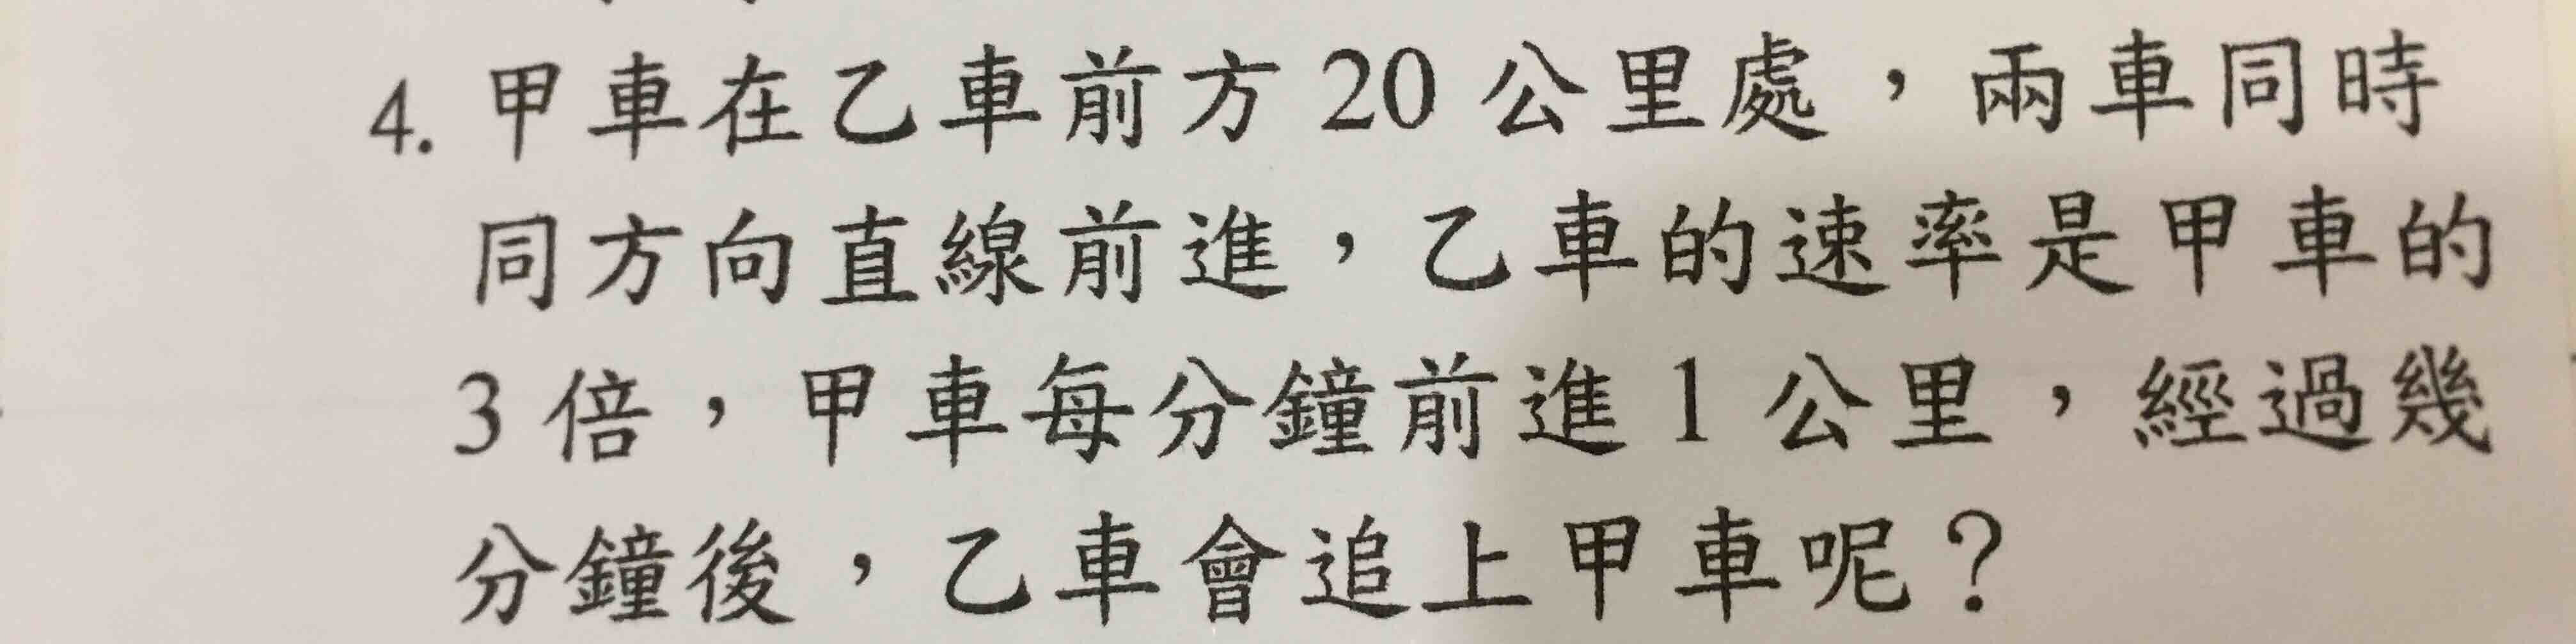 4. 甲車在乙車前方 20 公里處，兩車同時
同方向直線前進，乙車的速率是甲車的
3 倍，甲車每分鐘前進 1 公里，經過幾
分鐘後，乙車會追上甲車呢？